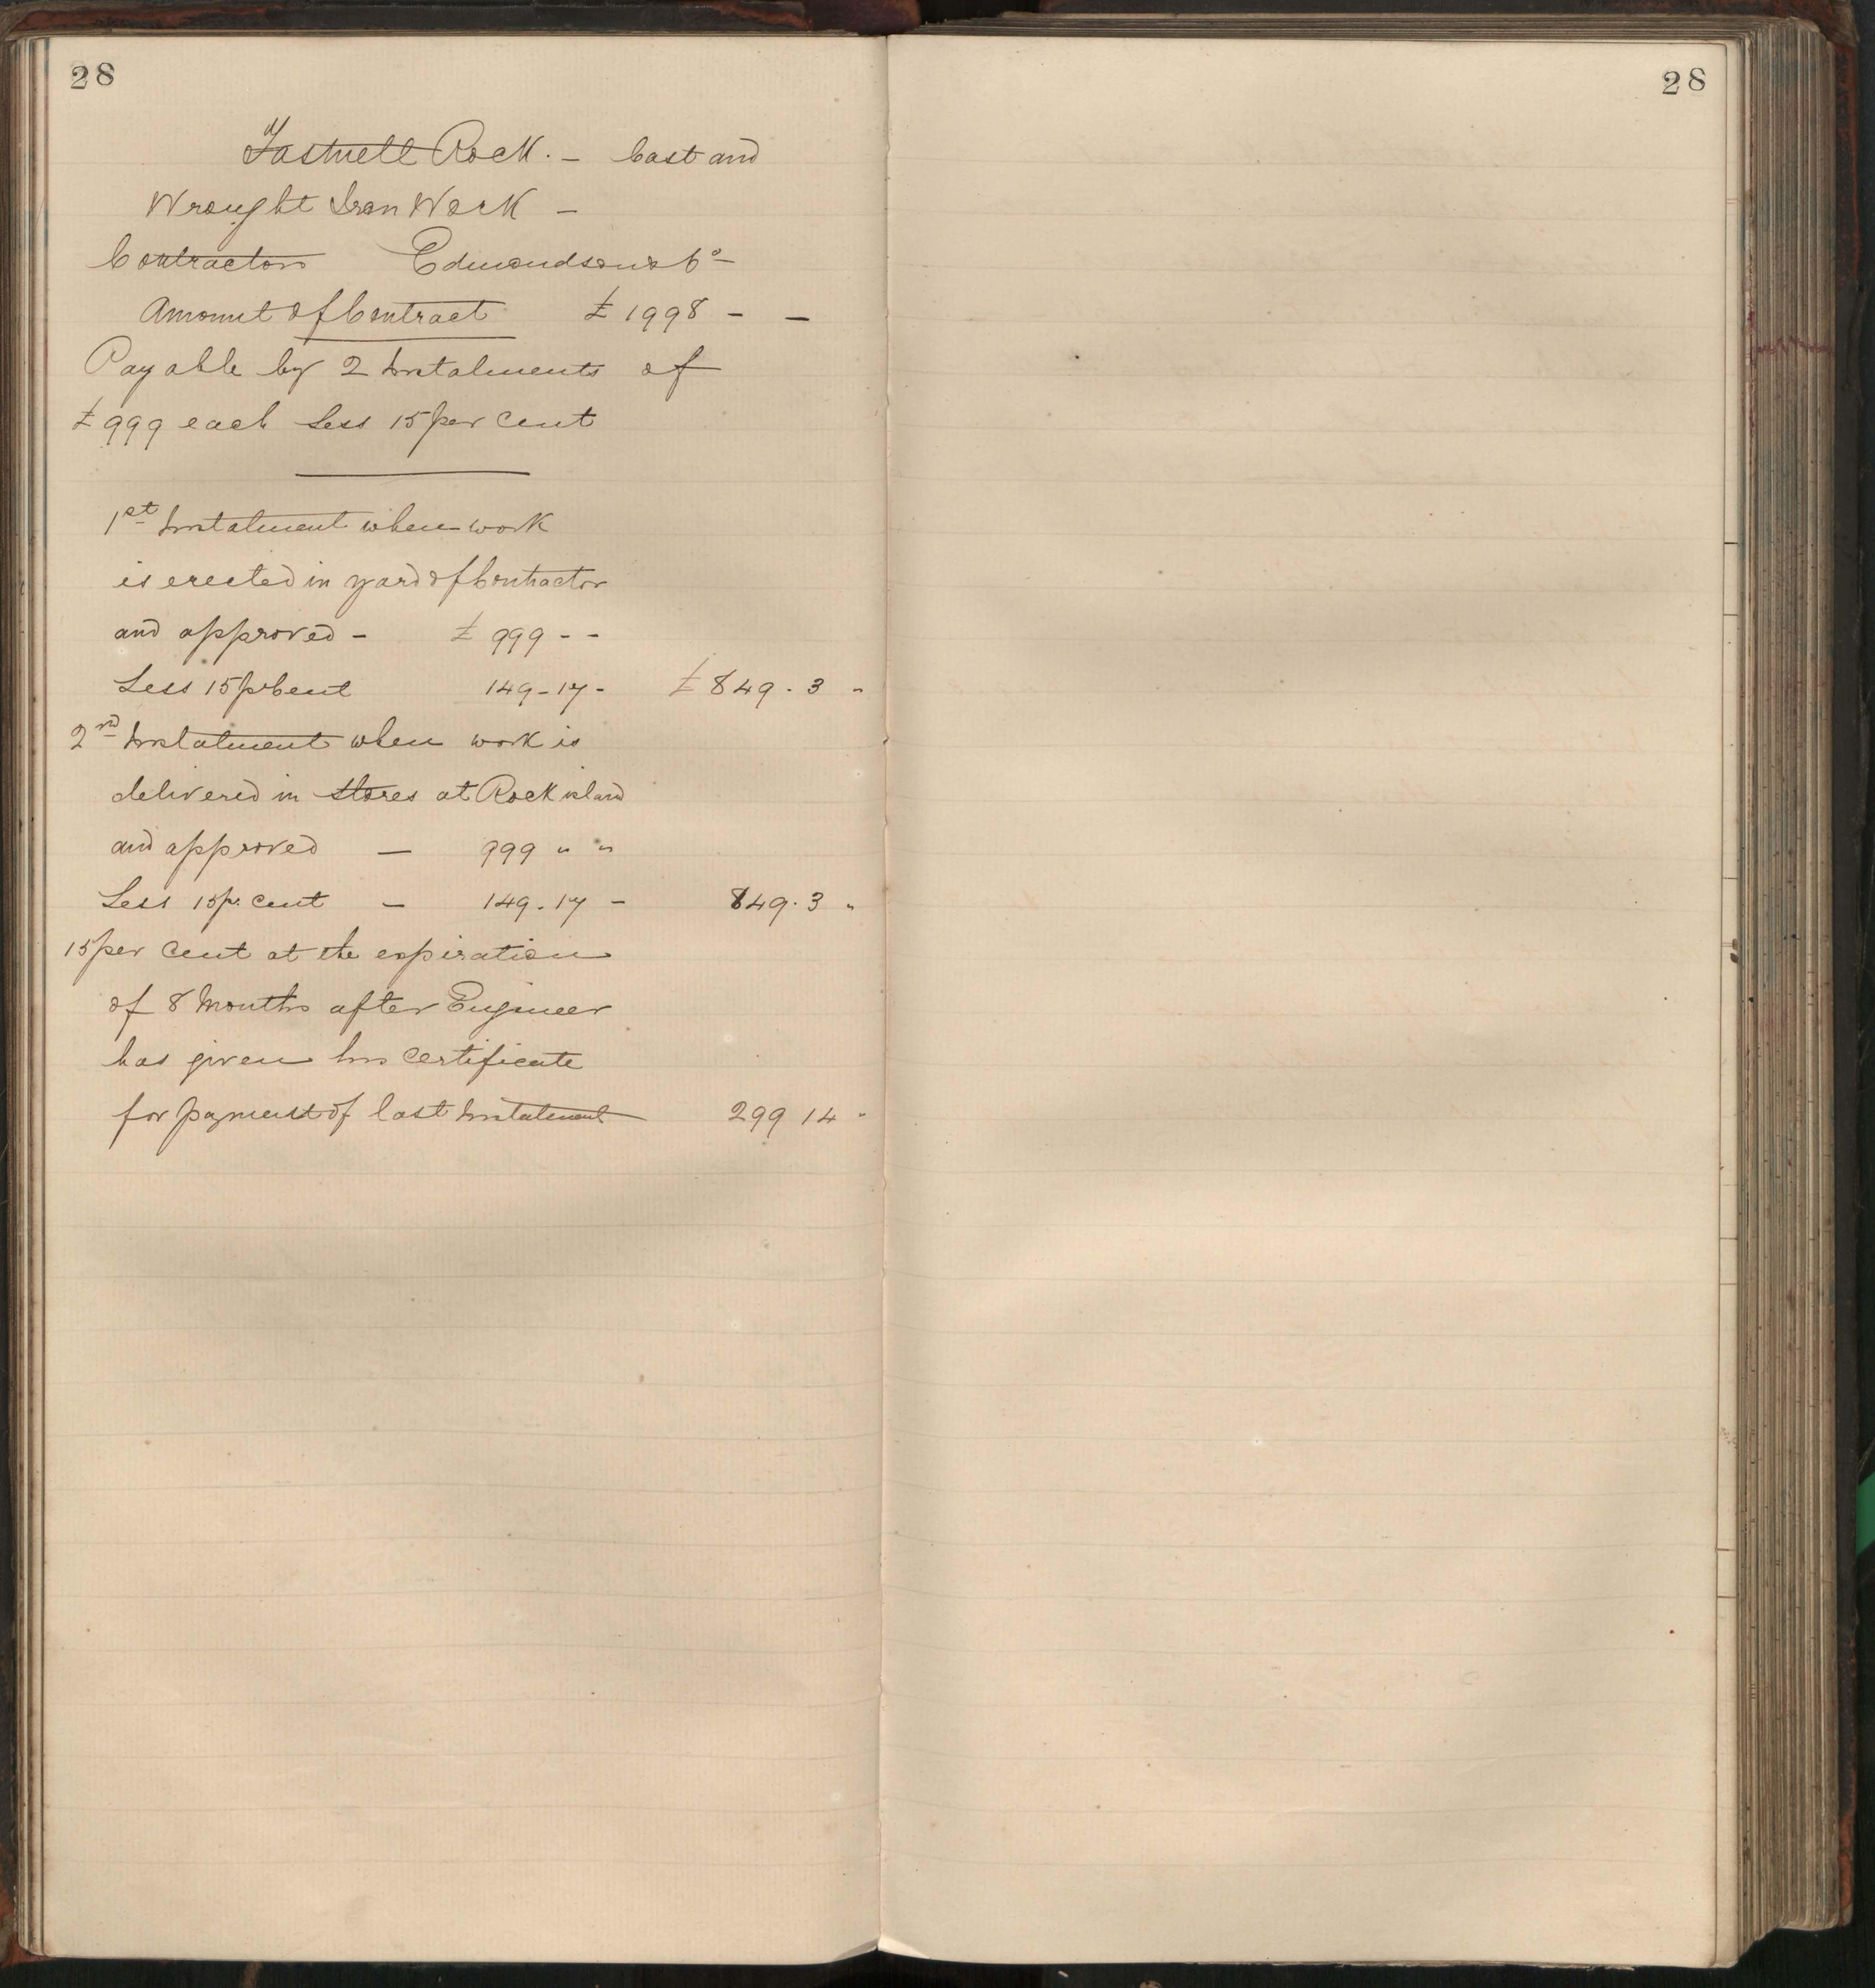 28
Fastnett Rock. - Cast and
Wrought Iron Work -
Contractors Edmondson & Co
Amount of Contract £ 1998 - -
Payable by 2 Instalments of
£ 999 each Less 15 per Cent
1st Instalment when work
is erected in yard of Contractor
and approved - £ 999 - -
Less 15 pr Cent 149 - 17 - £ 849 . 3 "
2nd Instalment when work is
delivered in stores at Rock island
and approved - 999 " "
Less 15 p. Cent - 149 . 17 - 849 . 3 "
15 per Cent at the expiration
of 8 Months after Engineer
has given his Certificate
for payment of last Instalment 299 14 "
28